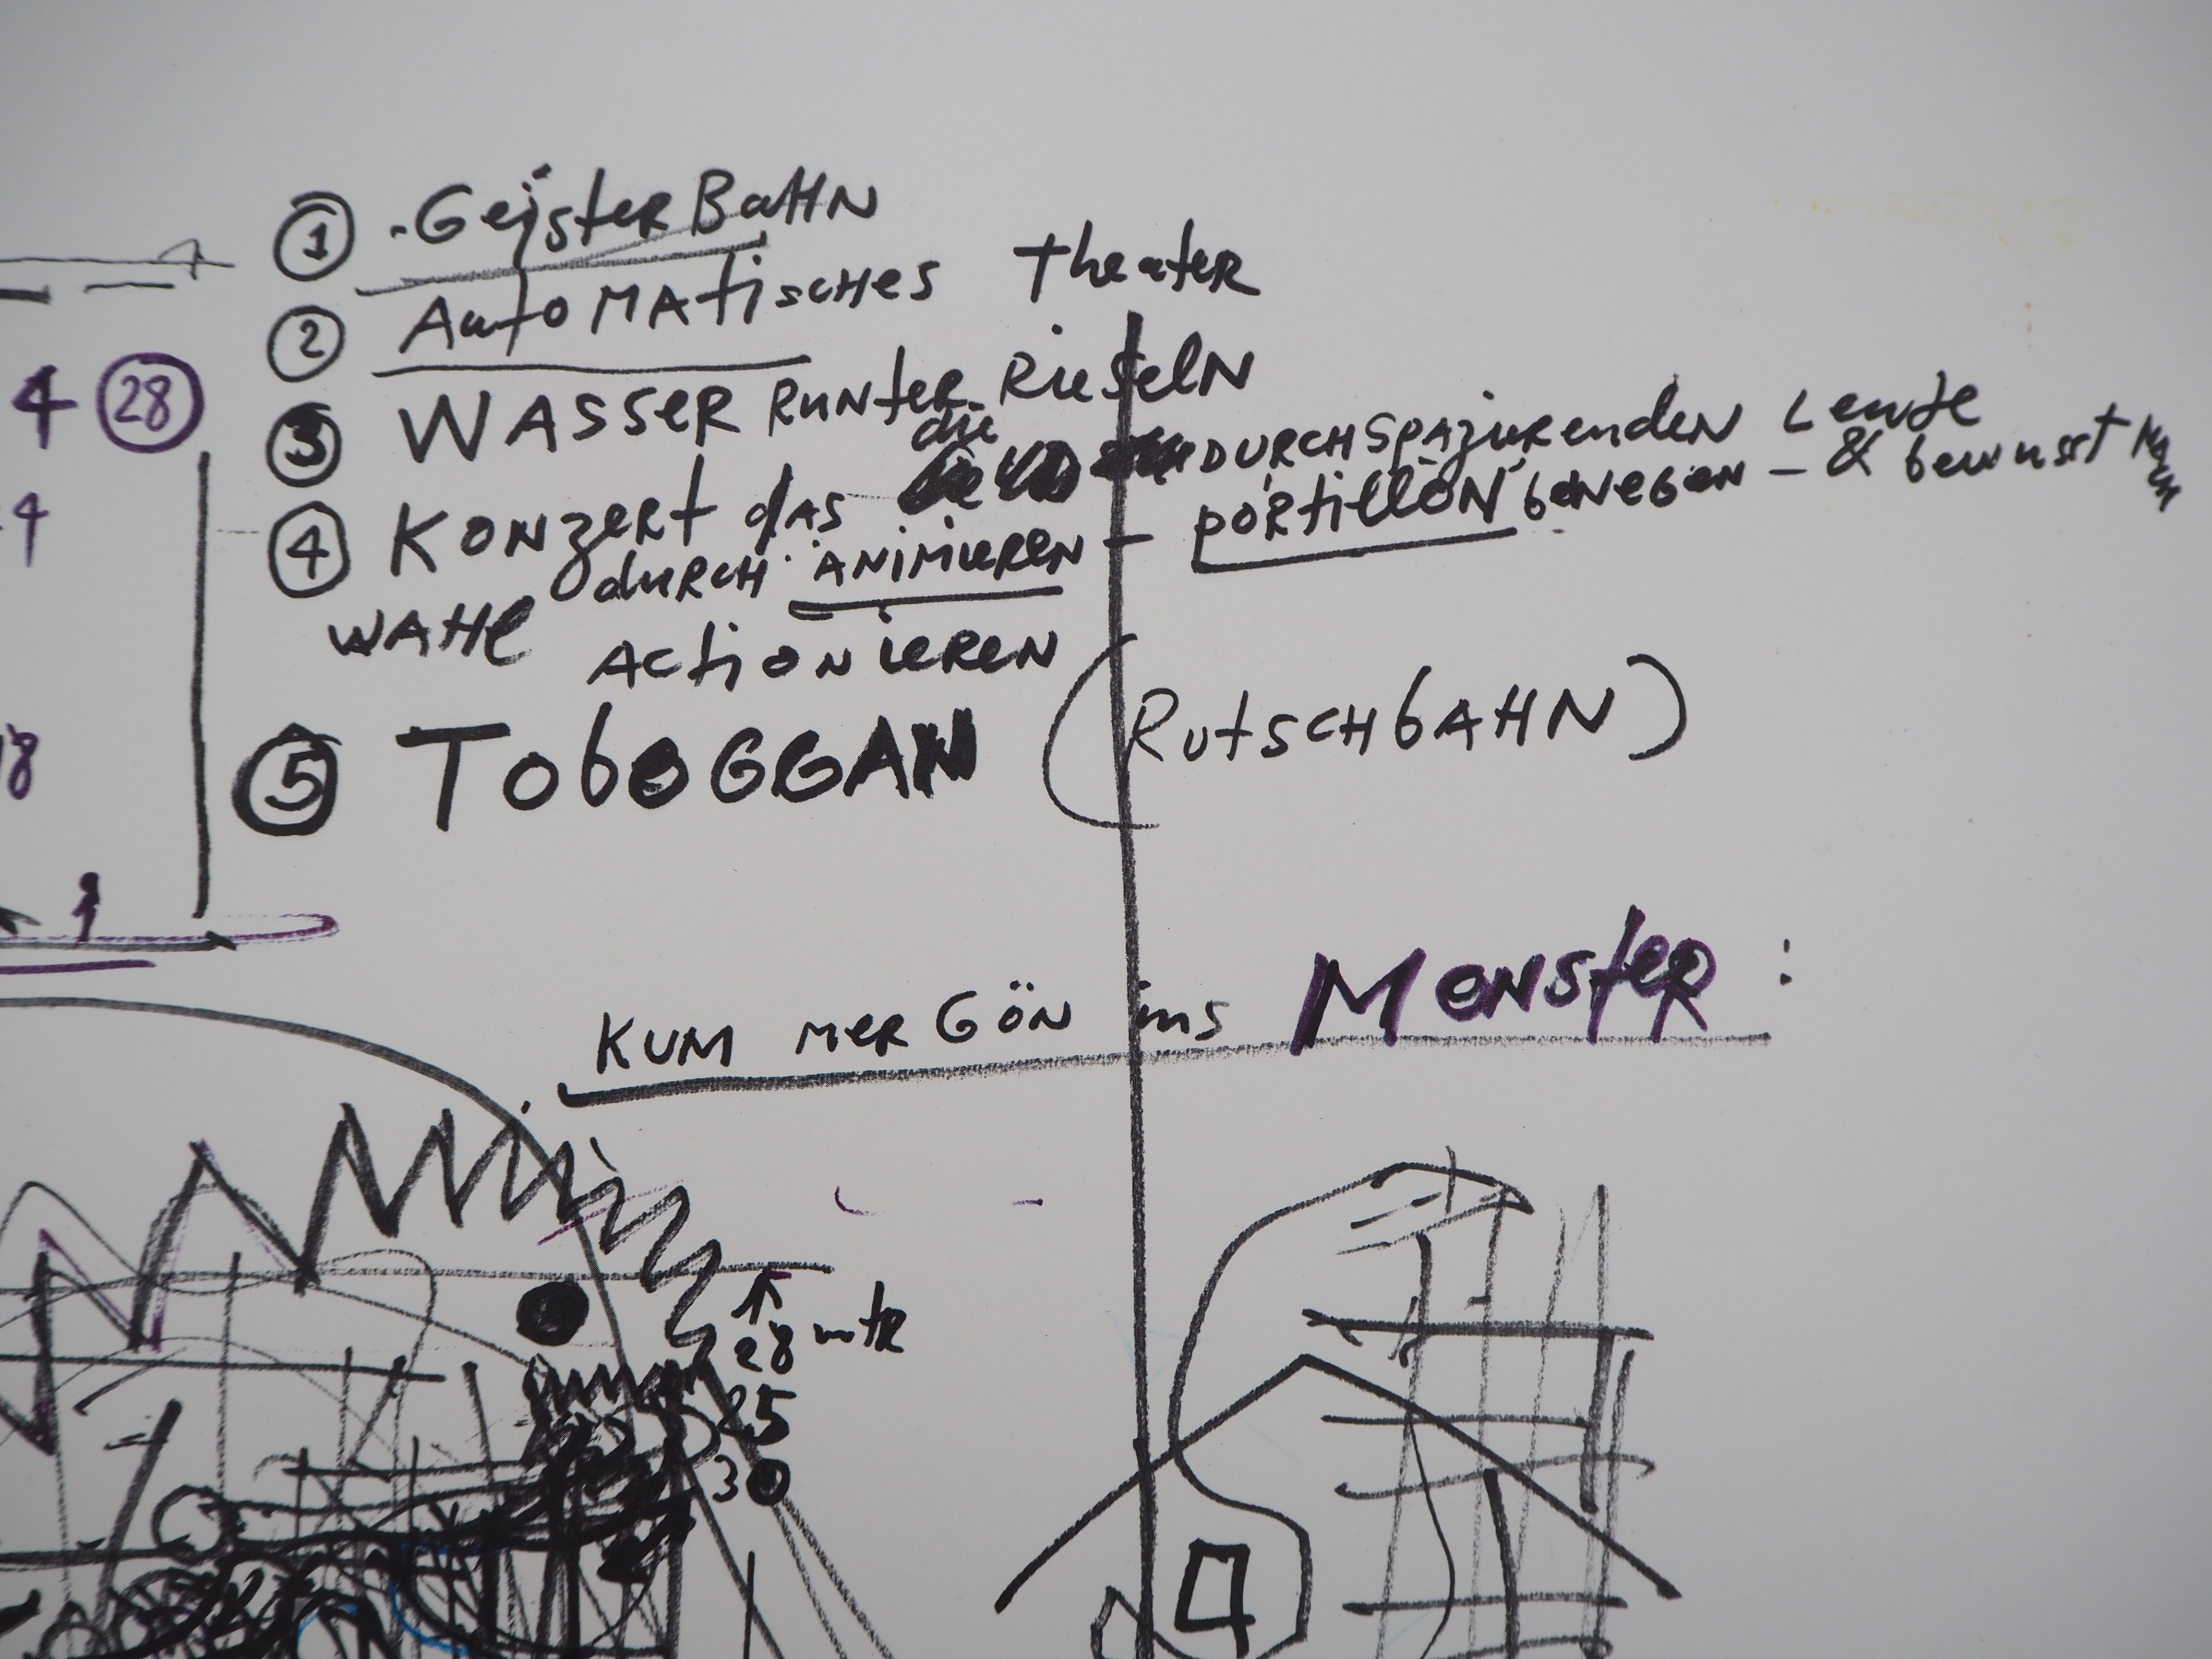 ① GeisterBaHN
② AutoMAtiscHes Theater
4 ㉘
③ WASSER RUNter Rieseln
④ KONzert das die DURCHSpAzierenden Leute
durcH ANiMieren - pORtillON bewegen - & bewusst
4
WAHl
ActioNieren
⑤ TobOGGAN (RutscHbAHN)
18
1
KUM MER GÖN ins MONsteR :
28 mtR
25
30